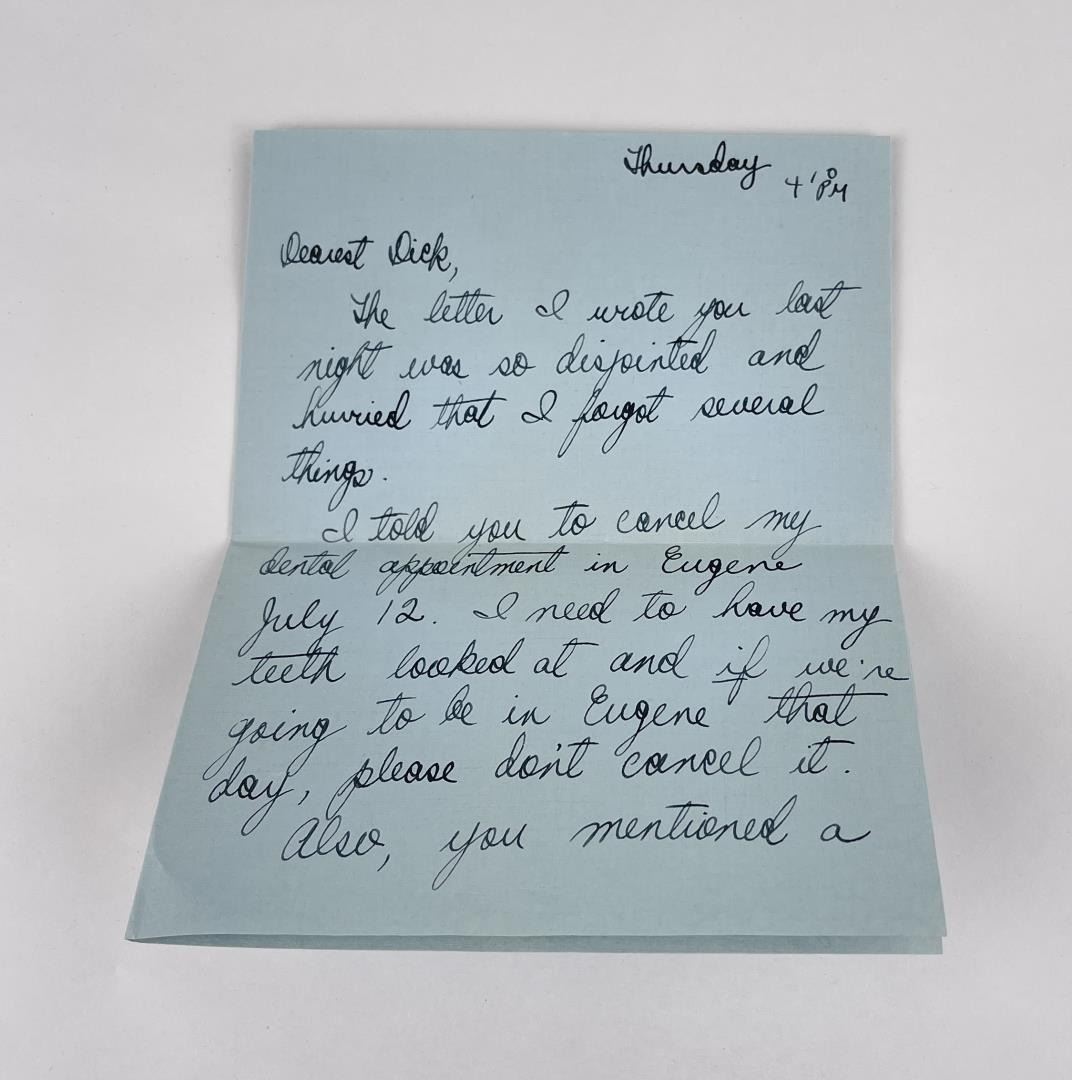 Thursday
PM
Dearest Dick,
The letter I wrote you last
night was so disjointed and
hurried that I forgot several
things.
I told you to cancel my
dental appointment in Eugene
July 12. I need to have my
teeth looked at and if we're
going to be in Eugene that
day, please don't cancel it.
Also, you mentioned a